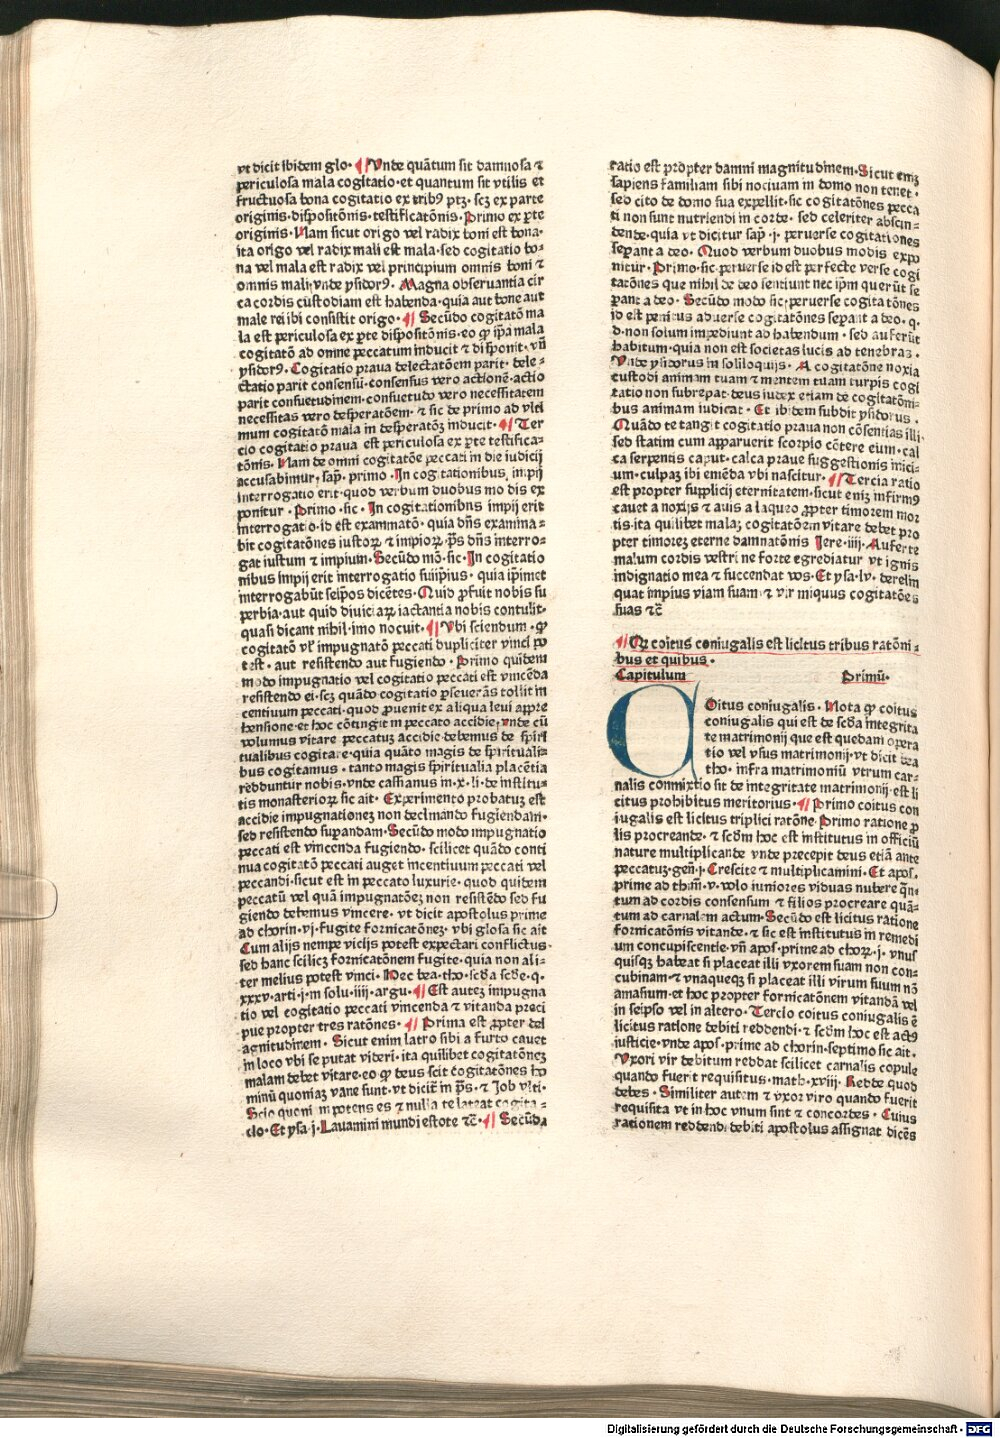 vt dicit ibidem glo· ¶ Vnde quãtum sit damnosa ⁊
periculosa mala cogitatio·et quantum sit vtilis et
fructuosa bona cogitatio ex tribꝰ ptꝫ· scꝫ ex parte
originis·dispositõnis·testificatõnis·Primo ex ꝑte
originis· Nam sicut origo vel radix boni est bona·
ita origo vel radix mali est mala·sed cogitatio bo⸗
na vel mala est radix vel principium omnis boni ⁊
omnis mali·vnde ysidorꝰ· Magna obseruantia cir
ca cordis custodiam est habenda·quia aut bone aut
male rei ibi consistit origo· ¶ Secũdo cogitatõ ma
la est periculosa ex ꝑte dispositõnis·eo ꝙ ip̃a mala
cogitatõ ad omne peccatum inducit ⁊ disponit· vñ
ysidorꝰ· Cogitatio praua delectatõem parit· dele⸗
ctatio parit consensũ·consensus vero actionẽ·actio
parit consuetudinem·consuetudo vero necessitatem
necessitas vero desperatõem· ⁊ sic de primo ad vlti
mum cogitatõ mala in desperatõꝫ inducit· ¶ Ter
cio cogitatio praua est periculosa ex ꝑte testifica⸗
tõnis· Nam de omni cogitatõe peccati in die iudicij
accusabimur·sap̃· primo·In cogitationibus impij
interrogatio erit·quod verbum duobus modis ex
ponitur·Primo·sic·In cogitationibus impij erit
interrogatio·id est examinatõ· quia dñs examina⸗
bit cogitatõnes iustoꝝ ⁊ impioꝝ·p̃s dñs interro⸗
gat iustum ⁊ impium·Secũdo mõ·sic·In cogitatio
nibus impij erit interrogatio suiip̃ius· quia ip̃imet
interrogabũt seip̃os dicẽtes·Quid ꝓfuit nobis su
perbia·aut quid diuiciaꝝ iactantia nobis contulit·
quasi dicant nihil·imo nocuit·¶ Vbi sciendum· ꝙ
cogitatõ vl̛ impugnatõ peccati dupliciter vinci po
test· aut resistendo aut fugiendo·Primo quidem
modo impugnatio vel cogitatio peccati est vincẽda
resistendo ei·scꝫ quãdo cogitatio ꝑseuerãs tollit in
centiuum peccati·quod ꝓuenit ex aliqua leui appre
hensione·et hoc cõtingit in peccato accidie·vnde cũ
volumus vitare peccatuꝫ accidie·debemus de spiri
tualibus cogitare·quia quãto magis de spirituali⸗
bus cogitamus·tanto magis spiritualia placẽtia
redduntur nobis·vnde cassianus in·x·li·de institu⸗
tis monasterioꝝ sic ait· Experimento probatuꝫ est
accidie impugnationeꝫ non declinando fugiendam·
sed resistendo suꝑandam·Secũdo modo impugnatio
peccati est vincenda fugiendo· scilicet quãdo conti
nua cogitatõ peccati auget incentiuum peccati vel
peccandi·sicut est in peccato luxurie·quod quidem
peccatũ vel quã impugnatõeꝫ non resistẽdo sed fu
giendo debemus vincere· vt dicit apostolus prime
ad chorin·vj·fugite fornicatõneꝫ·vbi glosa sic ait
Cum alijs nempe vicijs potest expectari conflictus·
sed hanc scilicꝫ fornicatõnem fugite·quia non ali⸗
ter melius potest vinci· Hec bea·tho·scd̃a scd̃e·q·
xxxv·arti·j·in solu·iiij·argu·¶ Est auteꝫ impugna
tio vel cogitatio peccati vincenda ⁊ vitanda preci
pue propter tres ratõnes· ¶ Prima est ꝓpter del
agnitudinem· Sicut enim latro sibi a furto cauet
in loco vbi se putat videri·ita quilibet cogitatõneꝫ
malam debet vitare·eo ꝙ deus scit cogitatões ho
minũ quoniaꝫ vane sunt·vt dicit̃ in p̃s·⁊ Job vlti·
Scio quoni m potens es ⁊ nulla te lateat cogita⸗
cio·Et ysa·j·Lauamini mundi estote ⁊c̃·¶ Secũda
ratio est propter damni magnitudinem·Sicut eniꝫ
sapiens familiam sibi nociuam in domo non tenet·
sed cito de domo sua expellit·sic cogitatõnes pecca
ti non sunt nutriendi in corde· sed celeriter abscin⸗
dende·quia vt dicitur sap̃·j·peruerse cogitationes
seꝑant a deo· Quod verbum duobus modis expo
nitur·Primo·sic·peruerse id est perfecte verse cogi
tatõnes que nihil de deo sentiunt nec ip̃m querũt se
ꝑant a deo· Secũdo modo sic·peruerse cogitatõnes
id est penitus aduerse cogitatõnes seꝑant a deo·q·
d·non solum impediunt ad habendum· sed auferũt
habitum·quia non est societas lucis ad tenebras·
Vnde ysidorus in soliloquijs· A cogitatõne noxia
custodi animam tuam ⁊ mentem tuam turpis cogi
tatio non subrepat·deus iudex etiam de cogitatõni⸗
bus animam iudicat· Et ibidem subdit ysidorus·
Quãdo te tangit cogitatio praua non cõsentias illi·
sed statim cum apparuerit scorpio cõtere eum·cal
ca serpentis caput·calca praue suggestionis inici⸗
um·culpaꝫ ibi emẽda vbi nascitur·¶ Tercia ratio
est propter supplicij eternitatem·sicut eniꝫ infirmꝰ
cauet a noxijs ⁊ auis a laqueo ꝓpter timorem mor
tis·ita quilibet malaꝫ cogitatõem vitare debet pro
pter timoreꝫ eterne damnatõnis Jere·iiij·Auferte
malum cordis vestri ne forte egrediatur vt ignis
indignatio mea ⁊ succendat vos·Et ysa·lv·derelin
quat impius viam suam·⁊ vir iniquus cogitatões
suas ⁊c̃
¶ Qꝫ coitus coniugalis est licitus tribus ratõni⸗
bus et quibus·
Capitulum Primũ·
COitus coniugalis· Nota ꝙ coitus
coniugalis qui est de scd̃a integrita
te matrimonij que est quedam opera
tio vel vsus matrimonij·vt dicit bea
tho· infra matrimoniũ vtrum car⸗
nalis commixtio sit de integritate matrimonij·est li
citus prohibitus meritorius·¶ Primo coitus con
iugalis est licitus triplici ratõne·Primo ratione ꝓ
lis procreande·⁊ scd̃m hoc est institutus in officiũ
nature multiplicande vnde precepit deus etiã ante
peccatuꝫ·geñ·j·Crescite ⁊ multiplicamini·Et apos̃·
prime ad thim̃·v·volo iuniores viduas nubere q̃n⸗
tum ad cordis consensum ⁊ filios procreare quã⸗
tum ad carnalem actum·Secũdo est licitus ratione
fornicatõnis vitande·⁊ sic est institutus in remedi
um concupiscentie·vñ apos̃·prime ad choꝝ·j·vnus
quisqꝫ habeat si placeat illi vxorem suam non con⸗
cubinam·⁊ vnaqueqꝫ si placeat illi virum suum nõ
amasium·et hoc propter fornicatõnem vitandã vel
in seipso vel in altero·Tercio coitus coniugalis ẽ
licitus ratione debiti reddendi·⁊ scd̃m hoc est actꝰ
iusticie·vnde apos̃·prime ad chorin·septimo sic ait·
Vxori vir debitum reddat scilicet carnalis copule
quando fuerit requisitus·math·xviij·Redde quod
debes·Similiter autem ⁊ vxor viro quando fuerit
requisita vt in hoc vnum sint ⁊ concordes· Cuius
rationem reddendi debiti apostolus assignat dicẽs
Digitalisierung gefördert durch die Deutsche Forschungsgemeinschaft - DFG